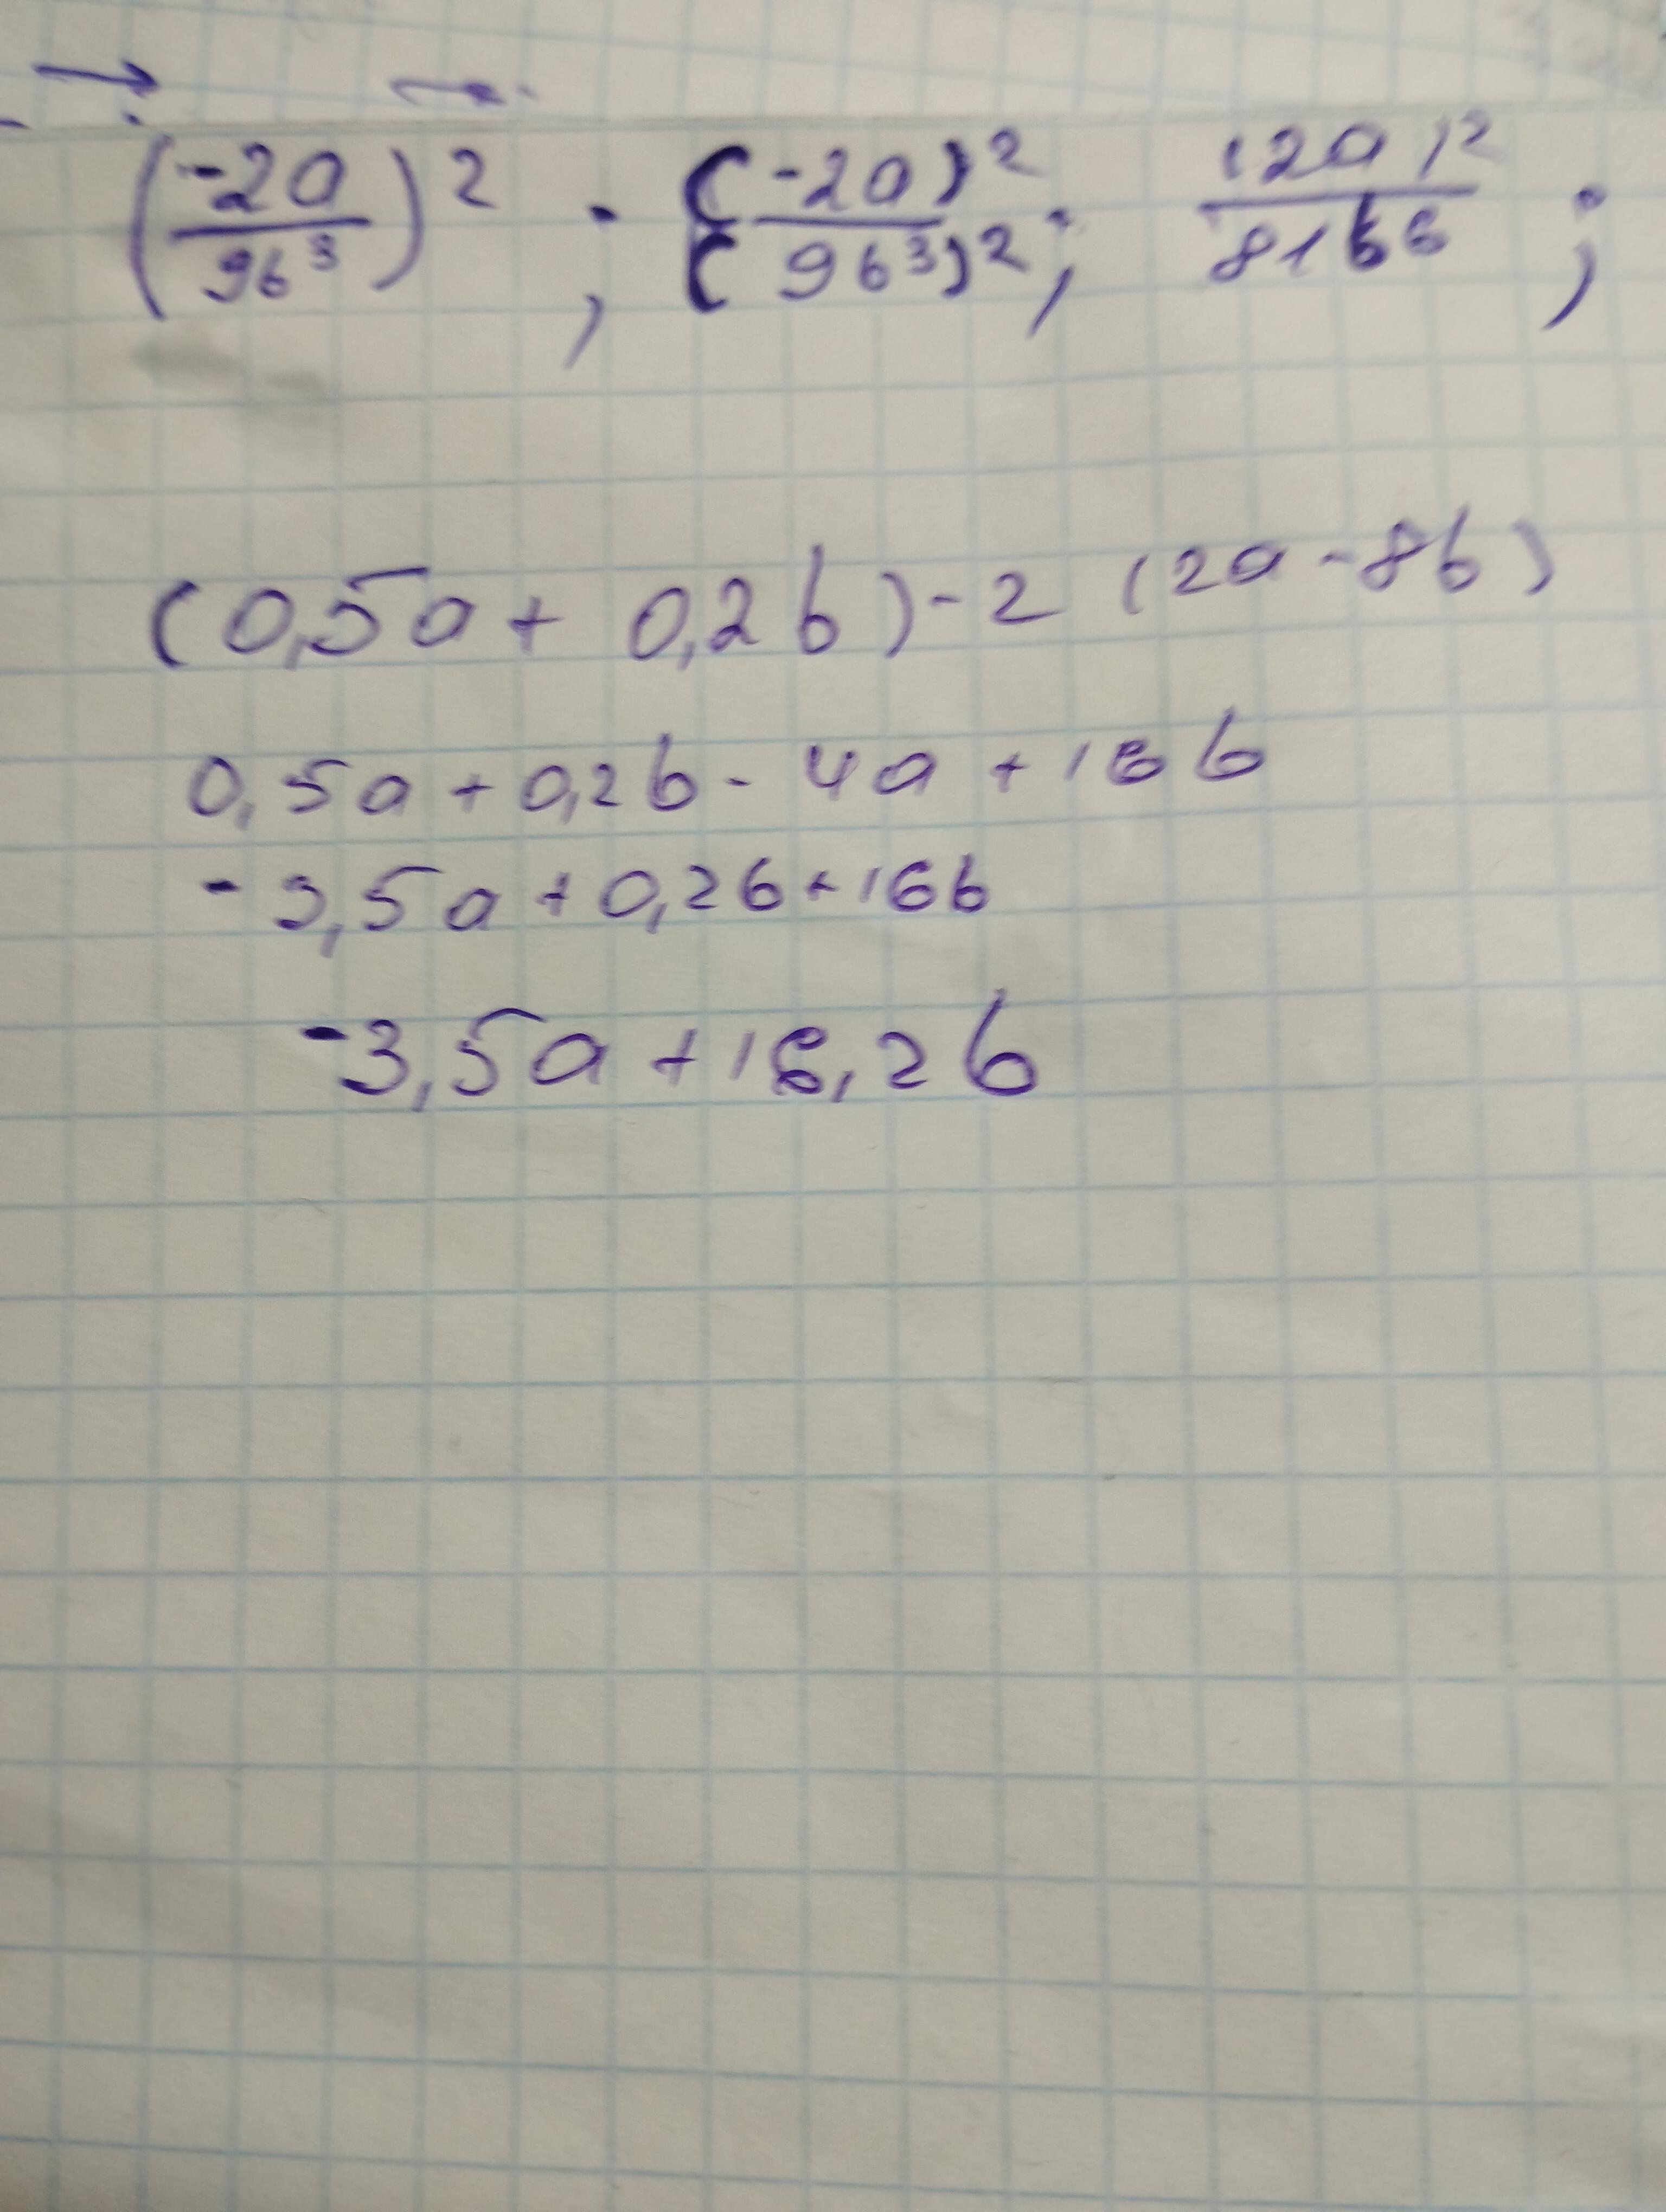 (-2a/9b³)² ; (-2a)²/(9b³)² ; (2a)²/81b⁶ ;
(0,5a + 0,2b) - 2 (2a - 8b)
0,5a + 0,2b - 4a + 16b
-3,5a + 0,2b + 16b
-3,5a + 16,2b